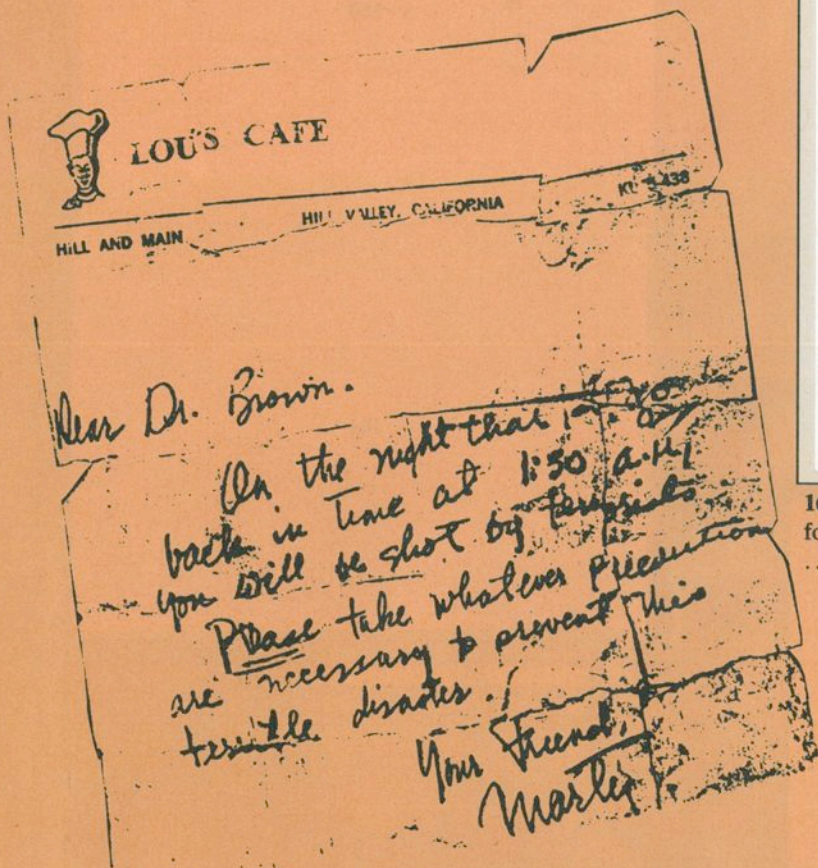 LOU'S CAFE
HILL AND MAIN HILL VALLEY, CALIFORNIA
Dear Dr. Brown.
On the night that I go
back in Time at 1:30 a.m,
you will be shot by terrorists.
Please take whatever precaution
are necessary to prevent this
terrible disaster.
Your Friend,
Marty